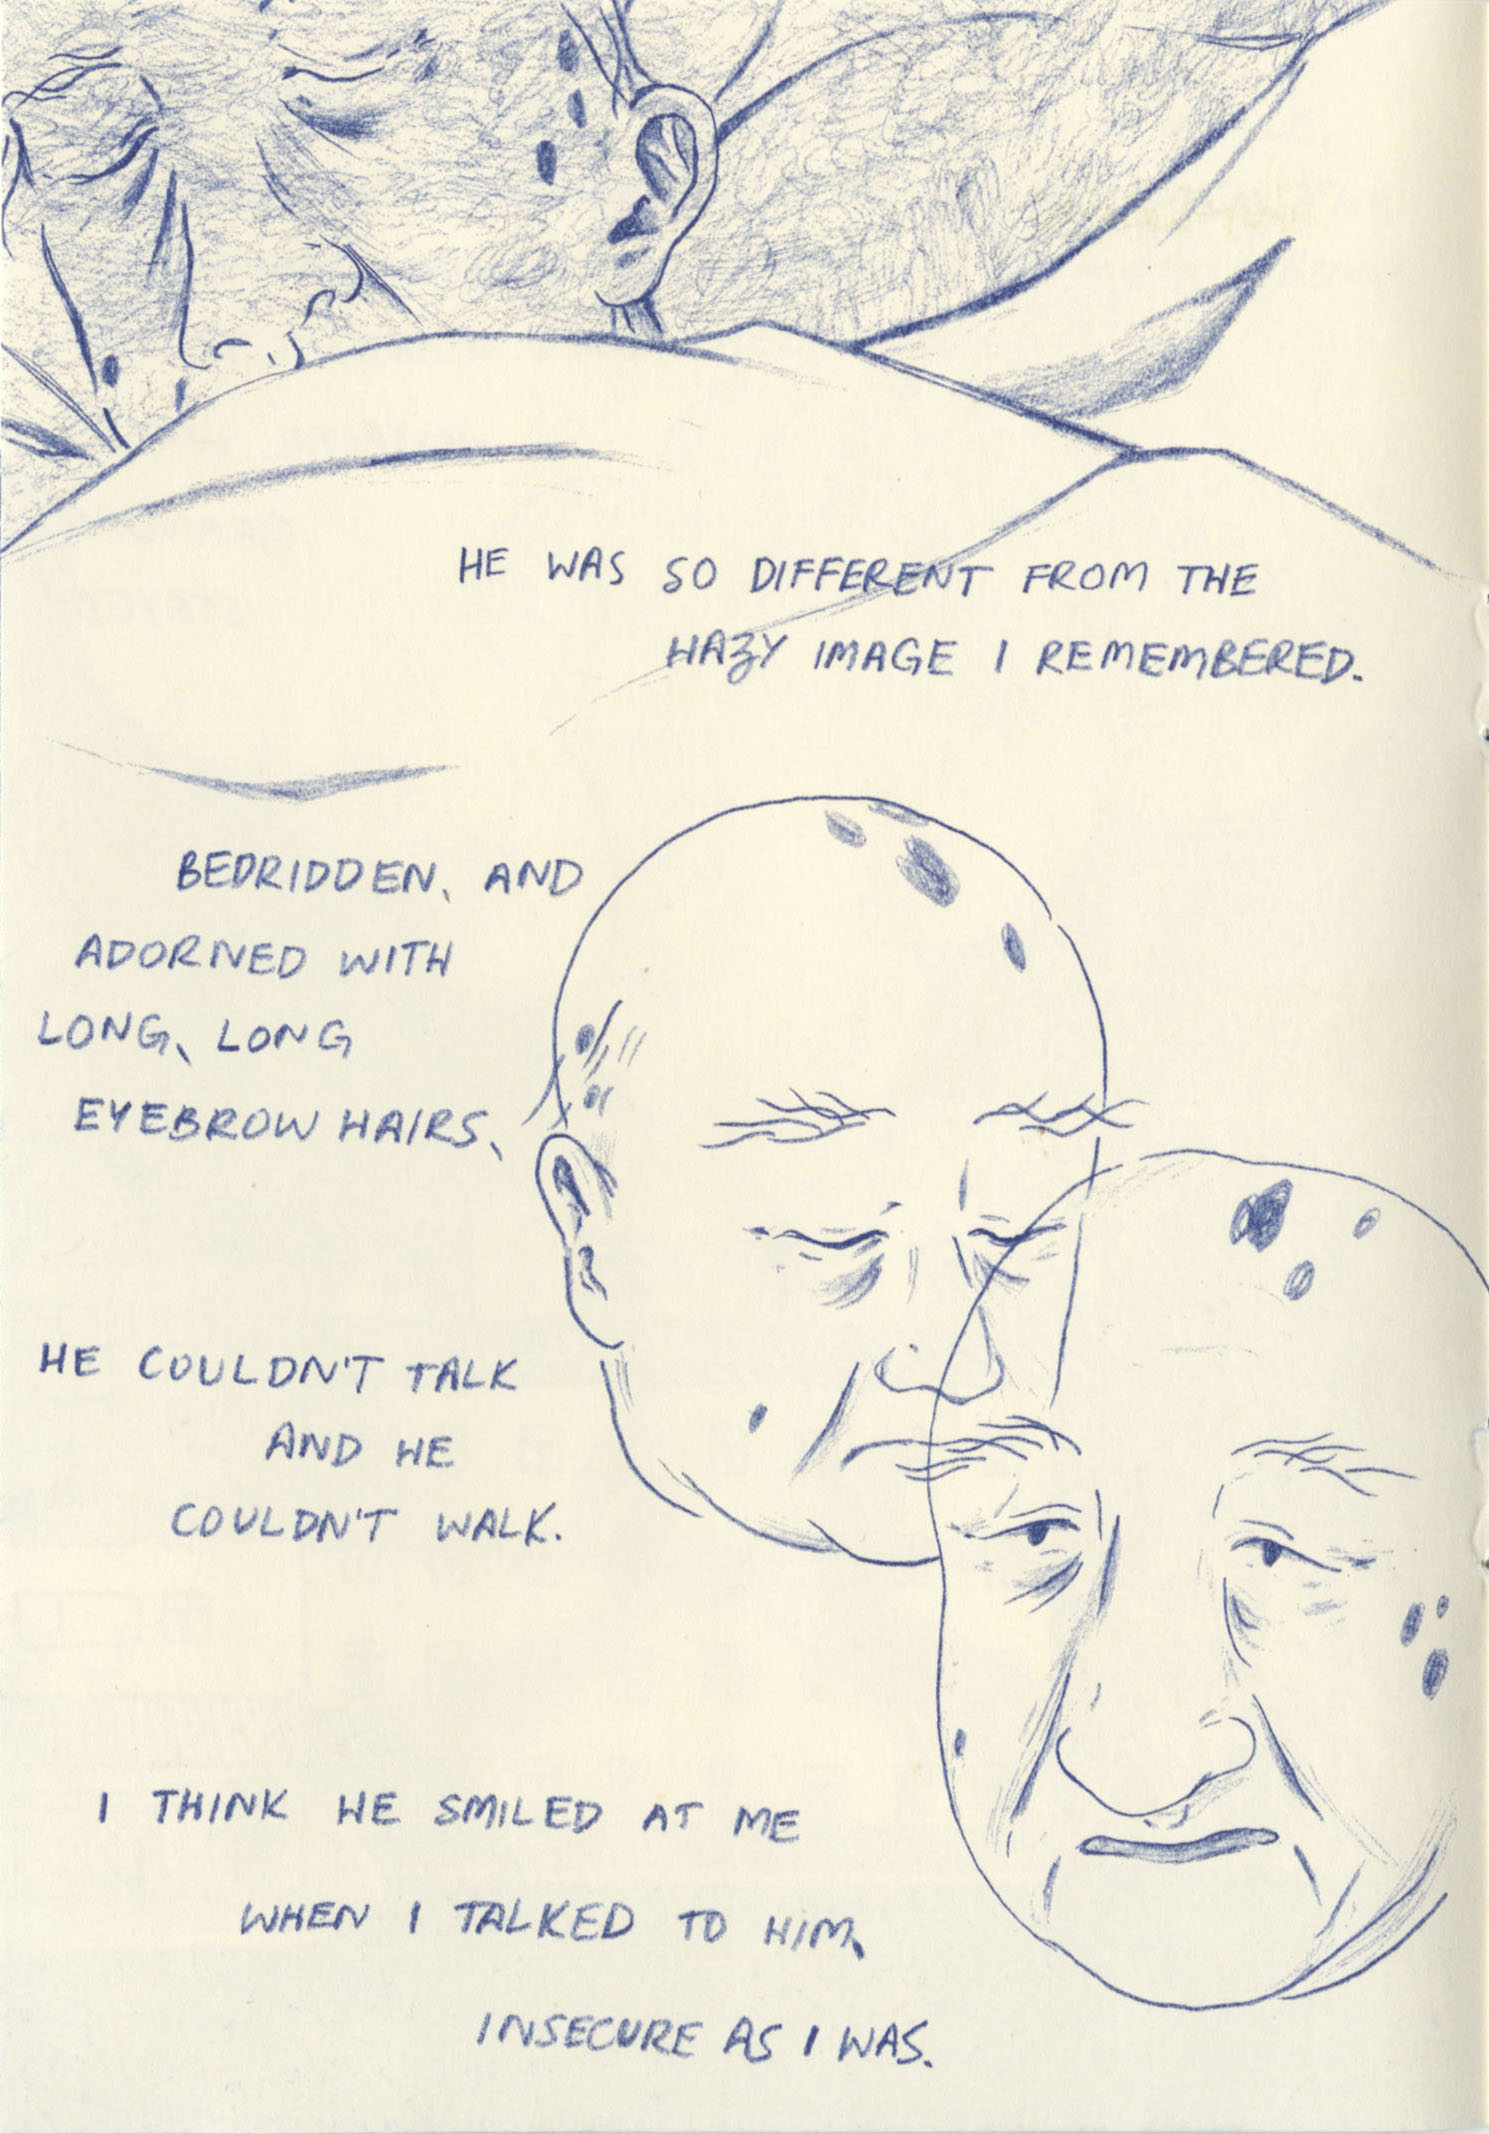 HE WAS SO DIFFERENT FROM THE
HAZY IMAGE I REMEMBERED.
BEDRIDDEN, AND
ADORNED WITH
LONG, LONG
EYEBROW HAIRS,
HE COULDN'T TALK
AND HE
COULDN'T WALK.
I THINK HE SMILED AT ME
WHEN I TALKED TO HIM,
INSECURE AS I WAS.